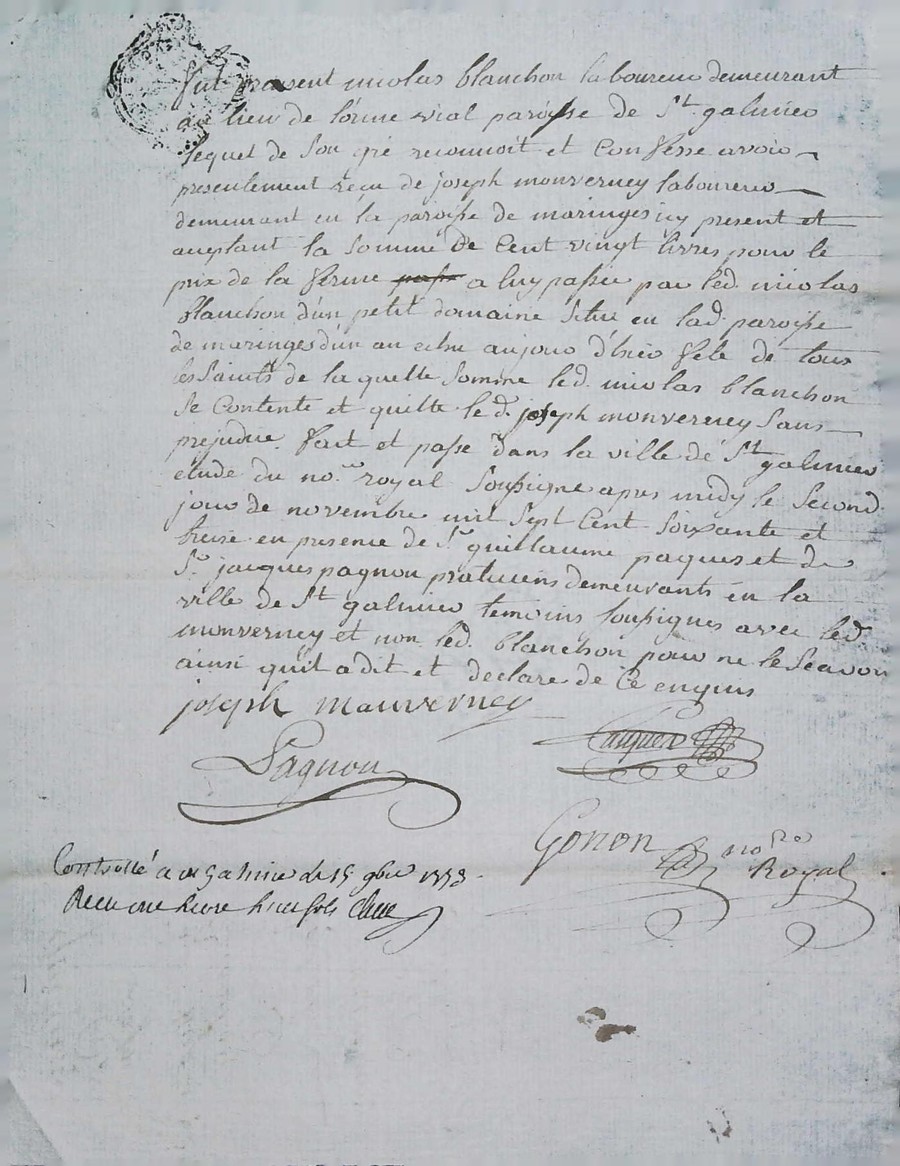 fut present nicolas blanchon laboureur demeurant
au lieu de l'orme vial paroisse de St. galmier
lequel de son gré reconnoit et confesse avoir
presentement reçu de joseph monverney laboureur
demeurant en la paroisse de maringes icy present et
aceptant la somme de cent vingt livres pour le
prix de la ferme passé a luy passée par led. nicolas
blanchon d'un petit domaine situé en lad. paroisse
de maringes d'un an echu aujour d'hier fete de tous
les saints de la quelle somme led. nicolas blanchon
se contente et quitte led. joseph monverney sans
prejudice. fait et passé dans la ville de St galmier
étude du nore. royal soussigné apres midy le second
jour de novembre mil sept cent soixante et
treize en presence de Sr. guillaume paquet et de
Sr. jacques pagnon praticiens demeurants en la
ville de St galmier temoins soussignes avec led.
monverney et non led. blanchon pour ne le scavoir
ainsi qu'il a dit et declaré de ce enquis
joseph mauverney
Pagnon
Gonon nore
Royal
Controllé a St Galmier le 15 9bre 1773.
Recu une livre huit sols